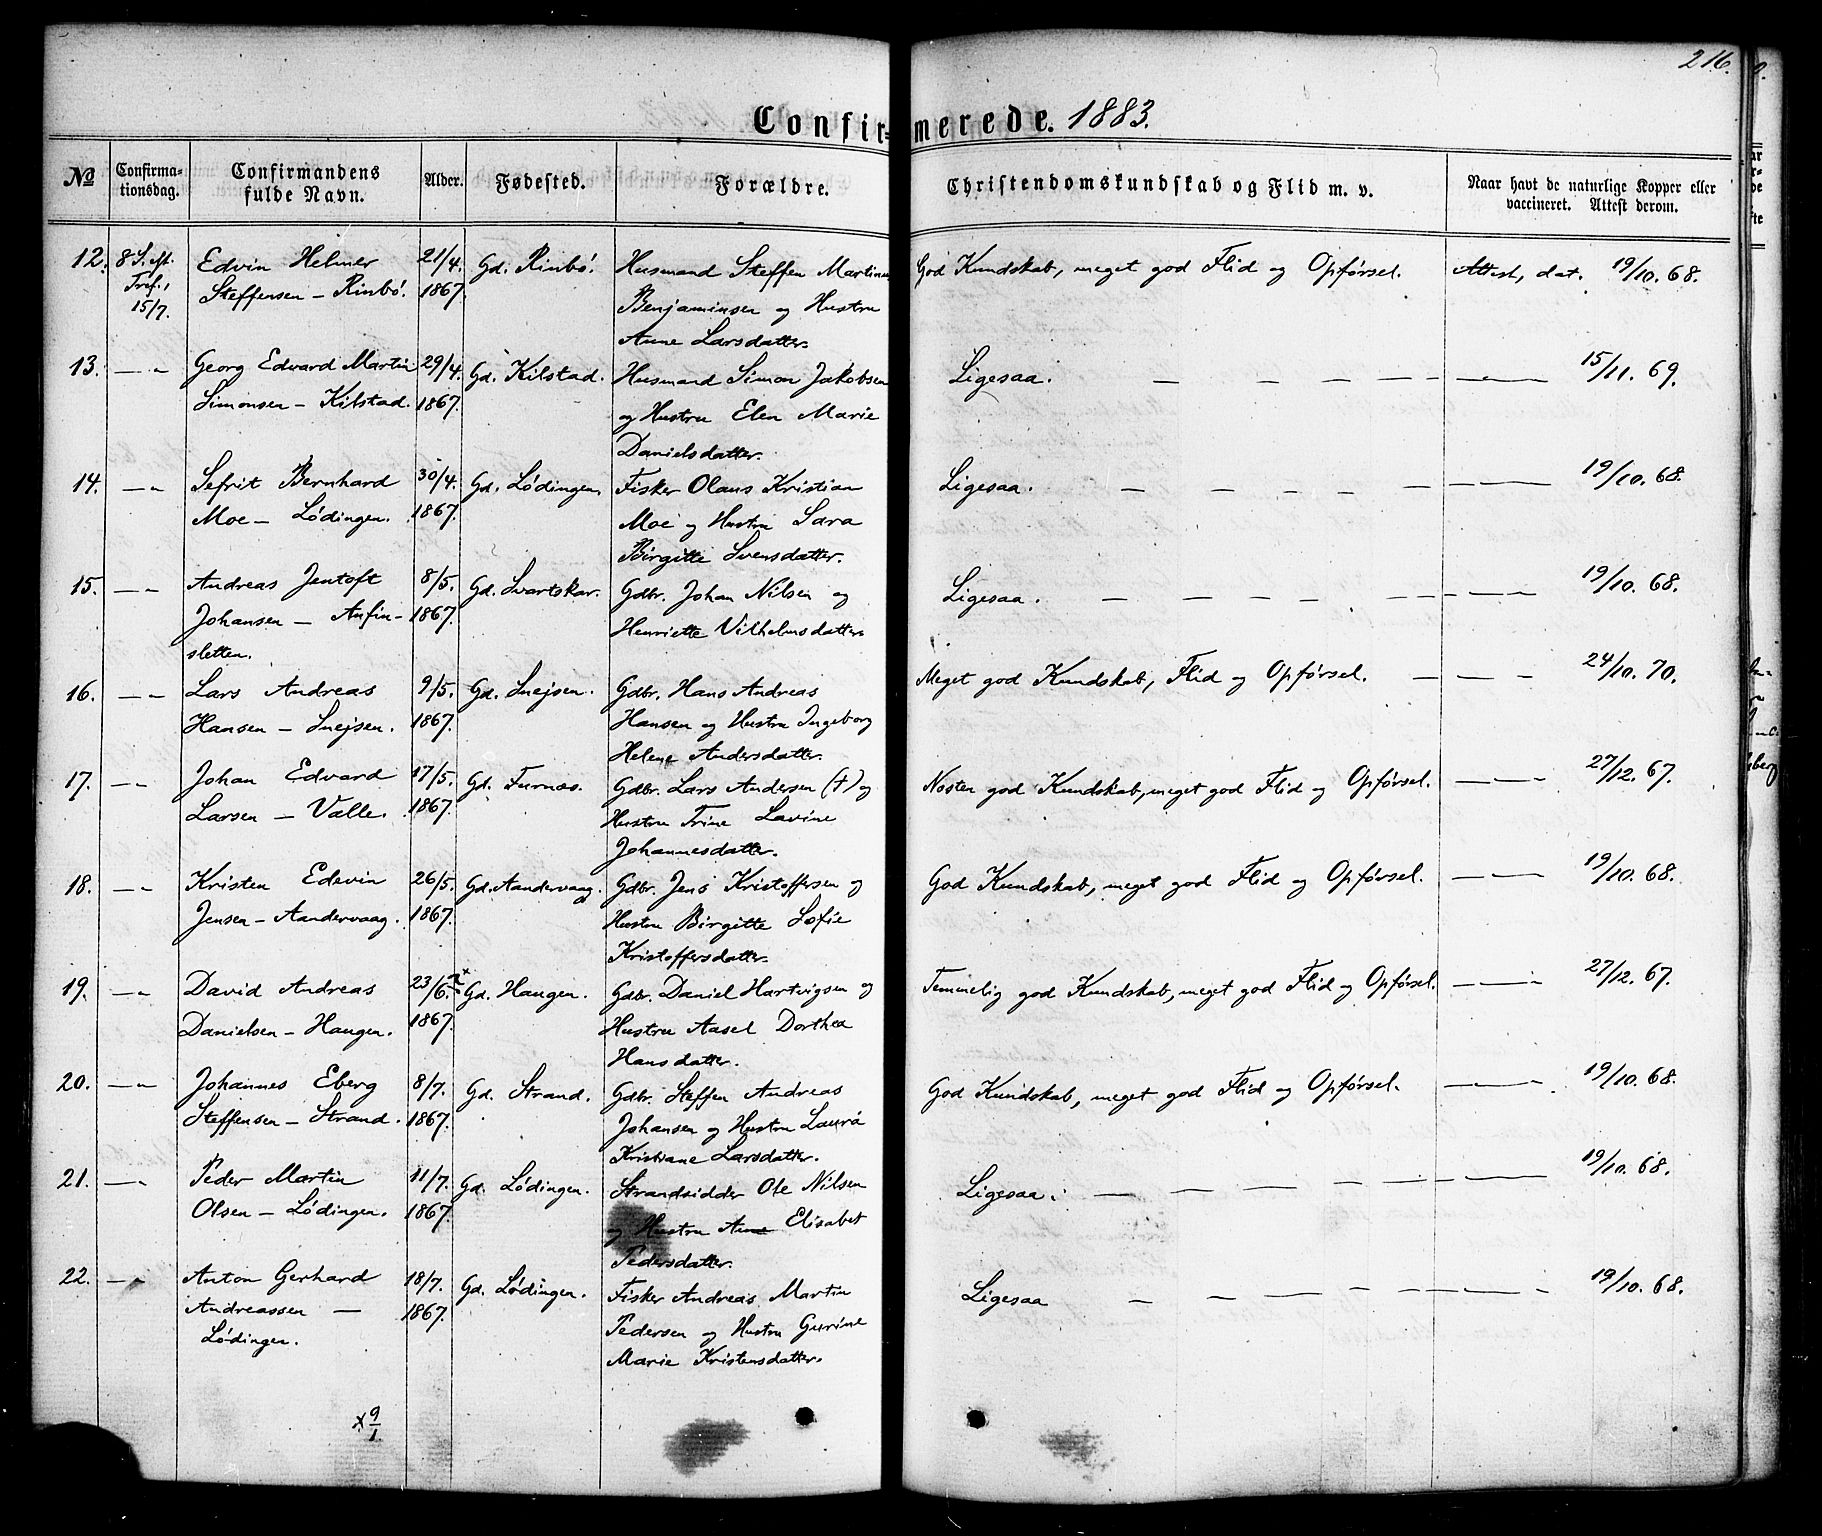 216.
Confirmerede. 1883.
No
Confirma-
tionsdag.
Confirmandens
fulde Navn.
Alder.
Fødested.
Forældre.
Christendomskundskab og Flid m. v.
Naar havt de naturlige Kopper eller
vaccineret. Attest derom.
12. 8 S. eft. Edvin Helmer 21/4. Gd. Rinbø. Husmand Steffen Martinus God Kundskab, meget god Flid og Opførsel. Attest, dat. 19/10. 68.
Tref., Steffensen – Rinbø. 1867. Benjaminsen og Hustru
15/7. Anne Larsdatter.
13. — „ Georg Edvard Martin 29/4. Gd. Kilstad. Husmand Simon Jakobsen Ligesaa. — — — — — — „ — 15/11. 69.
Simonsen – Kilstad. 1867. og Hustru Elen Marie
Danielsdatter.
14. — „ Sefrit Bernhard 30/4. Gd. Lødingen. Fisker Olaus Kristian Ligesaa. — — — — — — 19/10. 68.
Moe – Lødingen. 1867. Moe og Hustru Sara
Birgitte Svensdatter.
15. — „ Andreas Jentoft 8/5. Gd. Svartskar. Gdbr. Johan Nilsen og Ligesaa. — — — — — — 19/10. 68.
Johansen – Anfin- 1867. Henriette Vilhelmsdatter
sletten.
16. — „ Lars Andreas 9/5. Gd. Snejsen. Gdbr. Hans Andreas Meget god Kundskab, Flid og Opførsel. — — — 24/10. 70.
Hansen – Snejsen. 1867. Hansen og Hustru Ingeborg
Helene Andersdatter.
17. — „ Johan Edvard 17/5. Gd. Furnæs. Gdbr. Lars Andersen (†) og Næsten god Kundskab, meget god Flid og Opførsel. — „ 27/12. 67.
Larsen – Valle. 1867. Hustru Trine Lavine
Johannesdatter.
18. — „ Kristen Edevin 26/5. Gd. Aandervaag. Gdbr. Jens Kristoffersen og God Kundskab, meget god Flid og Opførsel. — „ 19/10. 68.
Jensen – Aandervaag. 1867. Hustru Birgitte Sofie
Kristoffersdatter.
19. — „ David Andreas 23/6. x Gd. Haugen. Gdbr. Daniel Hartvigsen og Temmelig god Kundskab, meget god Flid og Opførsel. — „ 27/12. 67.
Danielsen – Haugen. 1867. Hustru Aasel Dorthea
Hansdatter.
20. — „ Johannes Eberg 8/7. Gd. Strand. Gdbr. Steffen Andreas God Kundskab, meget god Flid og Opførsel. — „ 19/10. 68.
Steffensen – Strand. 1867. Johansen og Hustru Laura
Kristiane Larsdatter.
21. — „ Peder Martin 11/7. Gd. Lødingen. Strandsidder Ole Nilsen Ligesaa. — — — — — — 19/10. 68.
Olsen – Lødingen. 1867. og Hustru Anne Elisabet
Pedersdatter.
22. — „ Anton Gerhard 18/7. Gd. Lødingen. Fisker Andreas Martin Ligesaa — — — — — — „ 19/10. 68.
Andreassen — 1867. Pedersen og Hustru Gurine
Lødingen. Marie Kristensdatter.
x 9/1